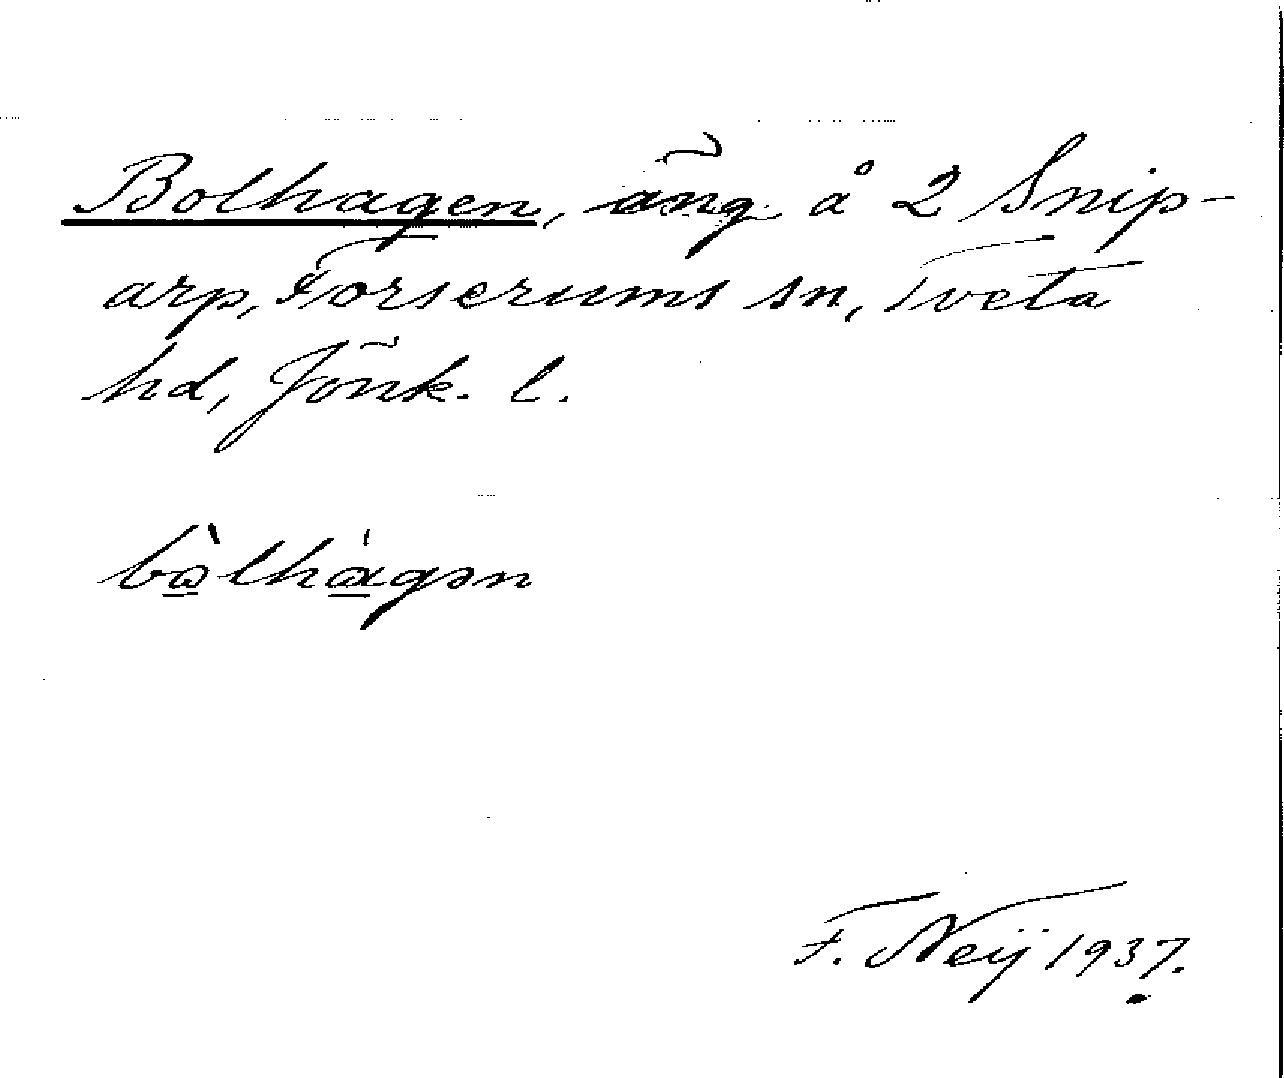 Bolhagen, äng å 2 Snip-
arp, Forserums sn, Tveta
hd, Jönk. l.
bòlhágən
F. Neij 1937.